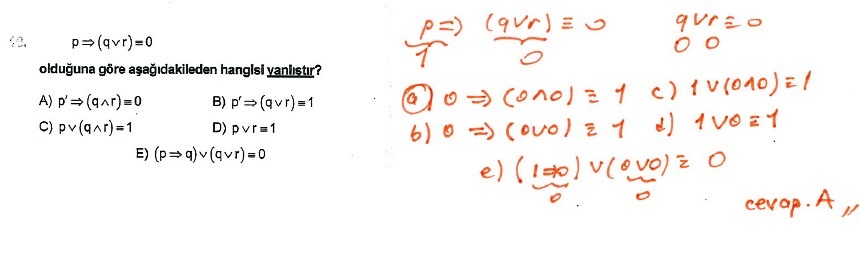 p⇒(q∨r)≡0
olduğuna göre aşağıdakileden hangisi yanlıştır?
A) p'⇒(q∧r)≡0 B) p'⇒(q∨r)≡1
C) p∨(q∧r)≡1 D) p∨r≡1
E) (p⇒q)∨(q∨r)≡0
p⇒ (q∨r) ≡ 0 q∨r ≡ 0
1 0 0 0
a) 0 ⇒ (0∧0) ≡ 1 c) 1∨(0∧0) ≡ 1
b) 0 ⇒ (0∨0) ≡ 1 d) 1∨0 ≡ 1
e) (1⇒0) ∨ (0∨0) ≡ 0
0 0
cevap. A //